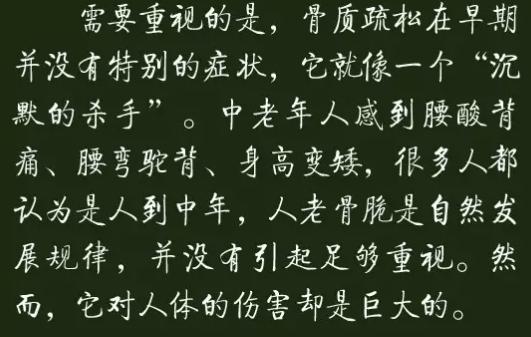 需要重视的是，骨质疏松在早期
并没有特别的症状，它就像一个“沉
默的杀手”。中老年人感到腰酸背
痛、腰弯驼背、身高变矮，很多人都
认为是人到中年，人老骨脆是自然发
展规律，并没有引起足够重视。然
而，它对人体的伤害却是巨大的。